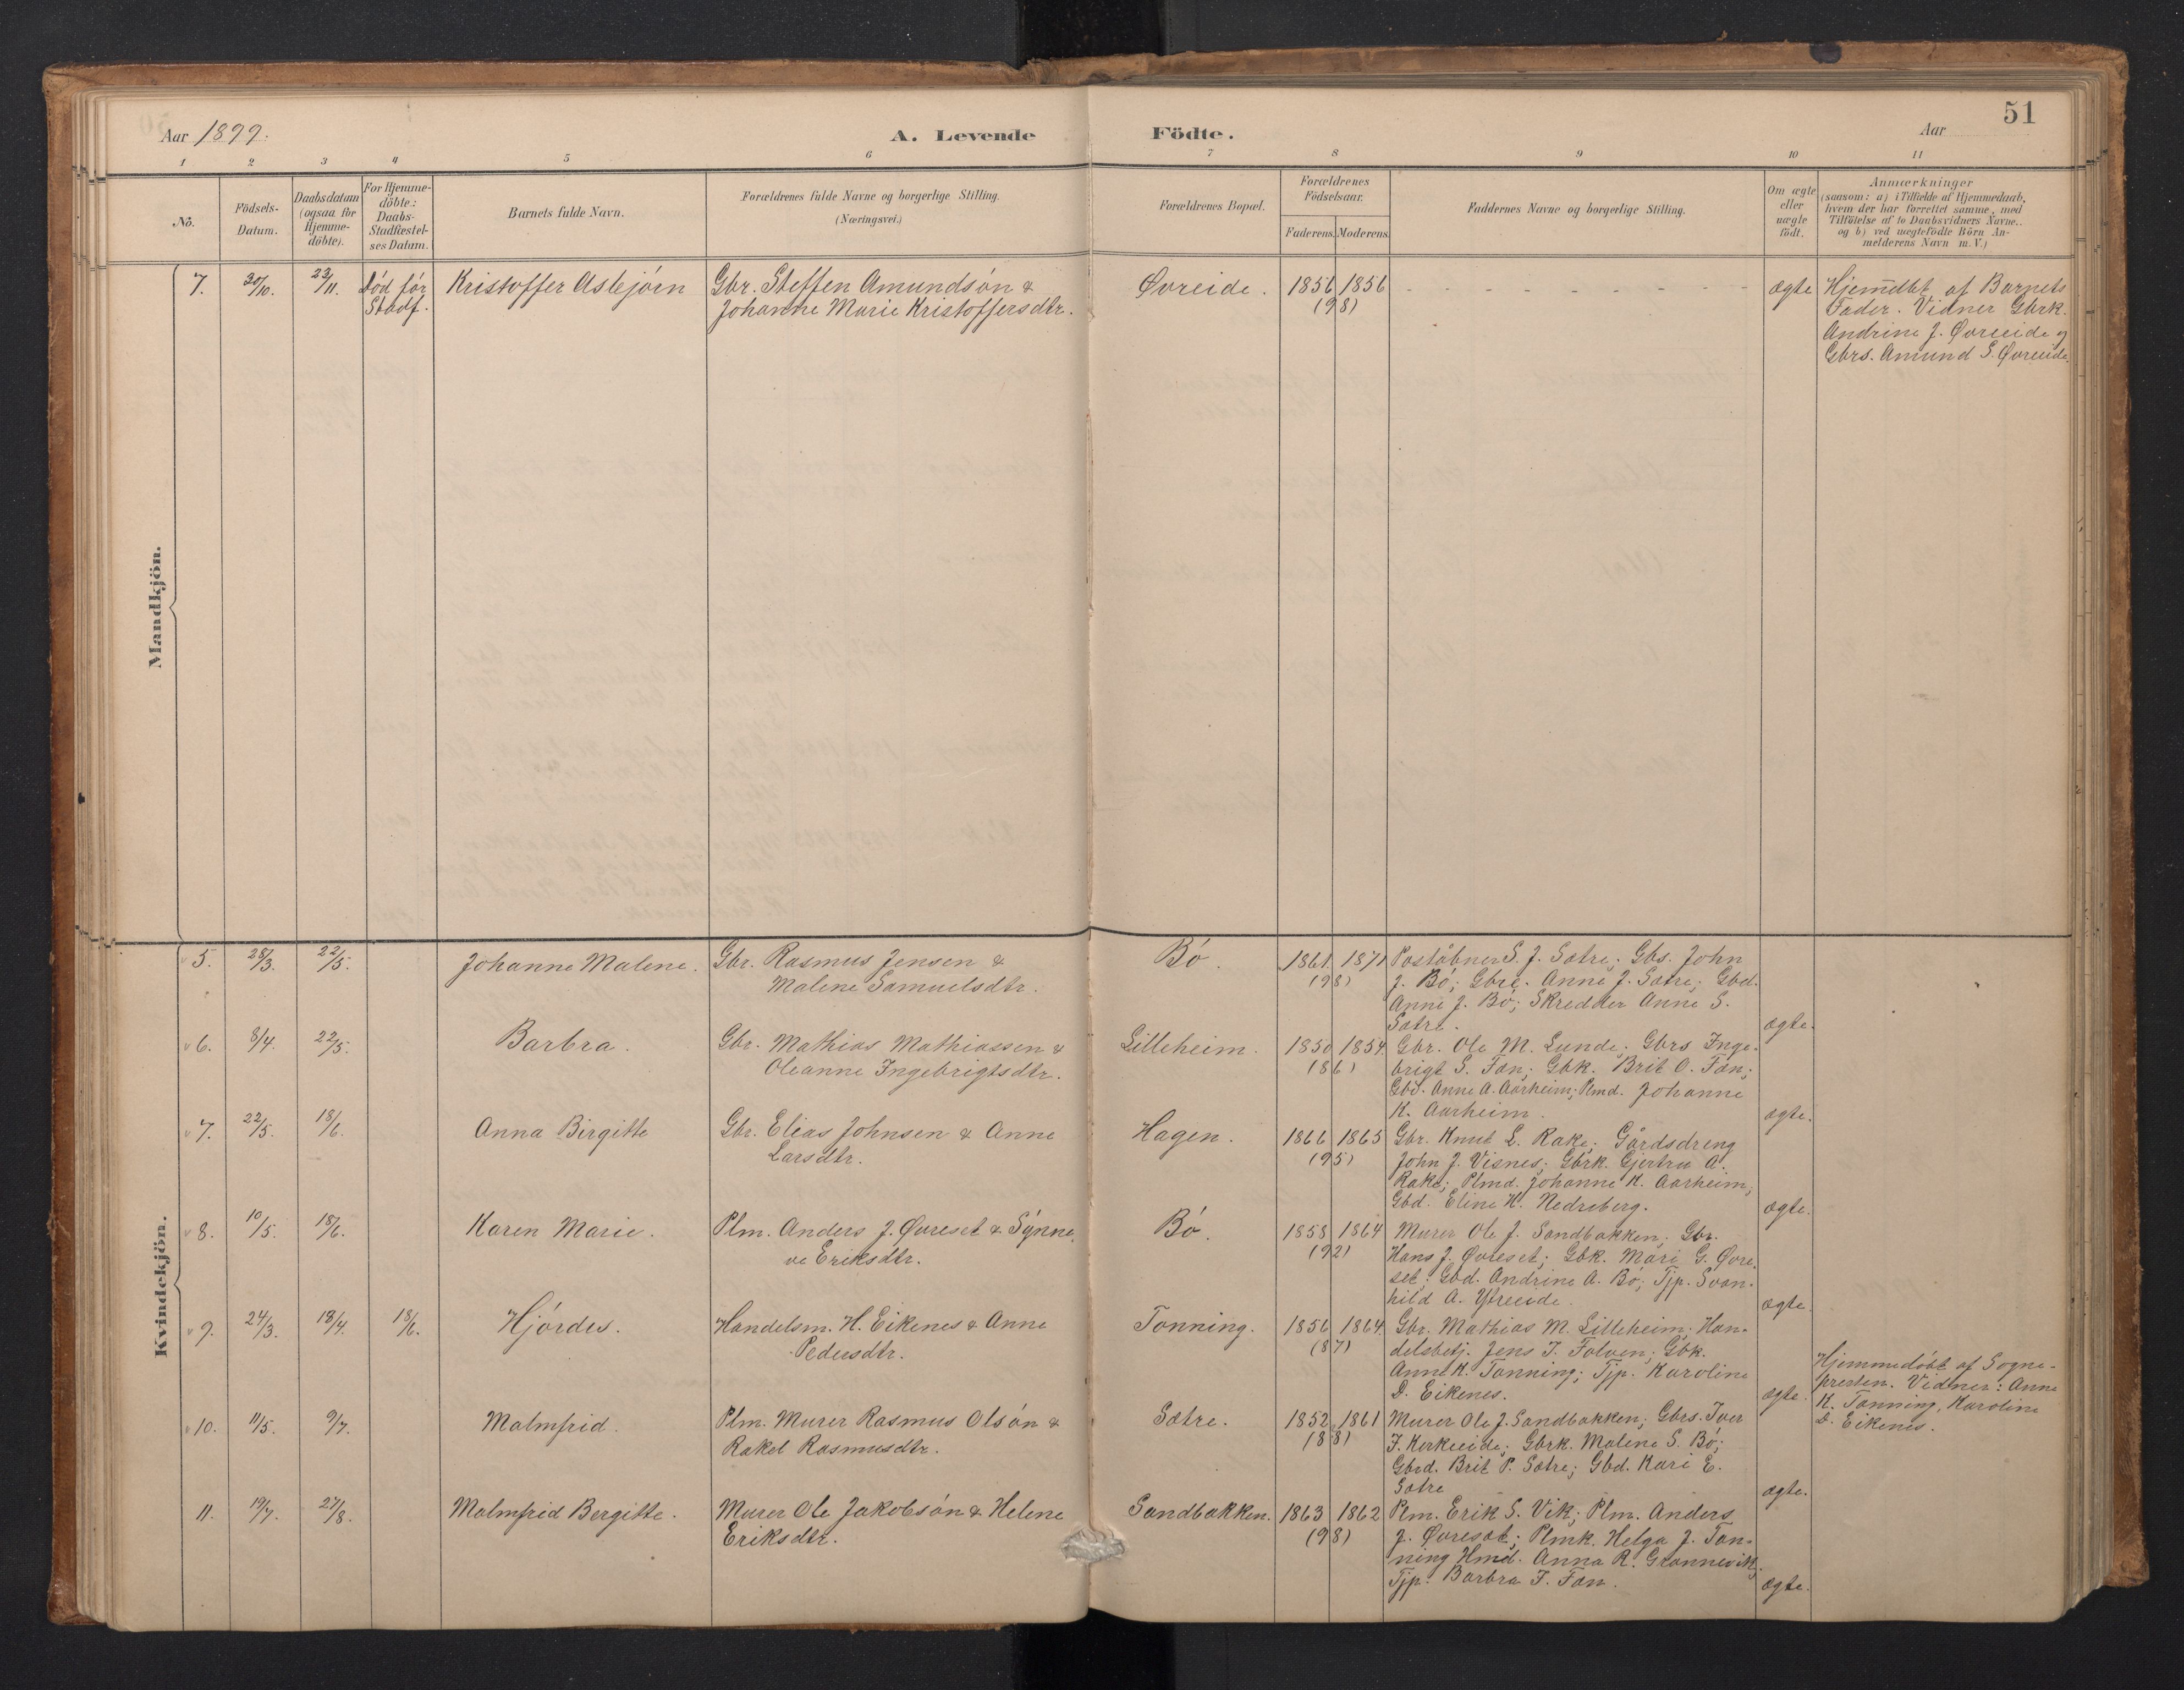 51
Aar 1899.
A. Levende Födte.
Aar
1 2 3 4 5 6 7 8 9 10 11
No.
Födsels-
Datum.
Daabsdatum
(ogsaa for
Hjemme-
döbte).
For Hjemme-
döbte:
Daabs-
Stadfæstel-
ses Datum.
Barnets fulde Navn.
Forældrenes fulde Navne og borgerlige Stilling.
(Næringsvei.)
Forældrenes Bopæl.
Forældrenes
Födselsaar.
Faderens. Moderens.
Faddernes Navne og borgerlige Stilling.
Om ægte
eller
uægte
födt.
Anmærkninger
(saasom: a) i Tilfælde af Hjemmedaab,
hvem der har forrettet samme, med
Tilföielse af to Daabsvidners Navne..
og b) ved uægtefödte Börn An-
melderens Navn m. V.)
Mandkjön.
7. 30/10. 23/11. Död för
Stadf.
Kristoffer Asbejörn
Gbr. Steffen Amundsön &
Johanne Marie Kristoffersdtr.
Øvreide.
1856 1856
(98)
ægte
Hjemdbt af Barnets
Fader. Vidner Gbrk.
Andrine J. Øvreeide og
Gbrs. Amund S. Øvreeide.
Kvindekjön.
5. 28/3. 22/5.
Johanne Malene.
Gbr. Rasmus Jensen &
Malene Samuelsdtr.
Bö.
1861. 1871
(98)
Poståbner S. J. Sætre; Gbs. John
J. Bö; Gbre. Anne J. Sætre; Gbd.
Anne J. Bö; Skredder Anne S.
Sætre.
ægte.
6. 8/4. 22/5.
Barbra.
Gbr. Mathias Mathiassen &
Oleanne Ingebrigtsdtr.
Lilleheim.
1850 1854.
(86)
Gbr. Ole M. Lunde; Gbrs Inge-
brigt S. Tæn; Gbk. Brit O. Tæn;
Gbd. Anne A. Aarheim; Plmd. Johanne
K. Aarheim.
ægte.
7. 22/5. 18/6.
Anna Birgitte
Gbr. Elias Johnsen & Anne
Larsdtr.
Hagen.
1866 1865
(95)
Gbr. Knut L. Rake; Gårdsdreng
John J. Visnes; Gbrk. Gjertru A.
Rake; Plmd. Johanne K. Aarheim;
Gbd. Eline H. Nedreberg.
ægte.
8. 10/5. 18/6.
Karen Marie.
Plm. Anders J. Øvreset & Synne-
ve Eriksdtr.
Bö.
1858 1864
(92)
Murer Ole J. Sandbakken; Gbr.
Hans J. Øvreset; Gbk. Mari G. Øvre-
set; Gbd. Andrine A. Bö; Tjp. Svan-
hild A. Ytreeide.
ægte.
9. 24/3. 19/4. 18/6.
Hjördes.
Handelsm. H. Eikenes & Anne
Pedersdtr.
Tonning.
1856 1864.
(87)
Gbr. Mathias M. Lilleheim; Han-
delsbetj. Jens T. Folven; Gbk.
Anne K. Tonning; Tjp. Karoline
D. Eikenes.
ægte.
Hjemmedöbt af Sogne-
presten. Vidner: Anne
K. Tonning, Karoline
D. Eikenes.
10. 11/5. 9/7.
Malmfrid.
Plm. Murer Rasmus Olsön &
Rakel Rasmusdtr.
Sætre.
1852 1861
(88)
Murer Ole J. Sandbakken; Gbrs. Iver
J. Kirkeeide; Gbrk. Malene S. Bö;
Gbrd. Brit P. Sætre; Gbd. Kari E.
Sætre
ægte.
11. 19/7. 27/8.
Malmfrid Bergitte.
Murer Ole Jakobsön & Helene
Eriksdtr.
Sandbakken.
1863 1862
(98)
Plm. Erik S. Vik; Plm. Anders
J. Øvresæt; Plmk. Helga J. Ton-
ning Hmd. Anna R. Grannevik;
Tjp. Barbra I. Tæn.
ægte.